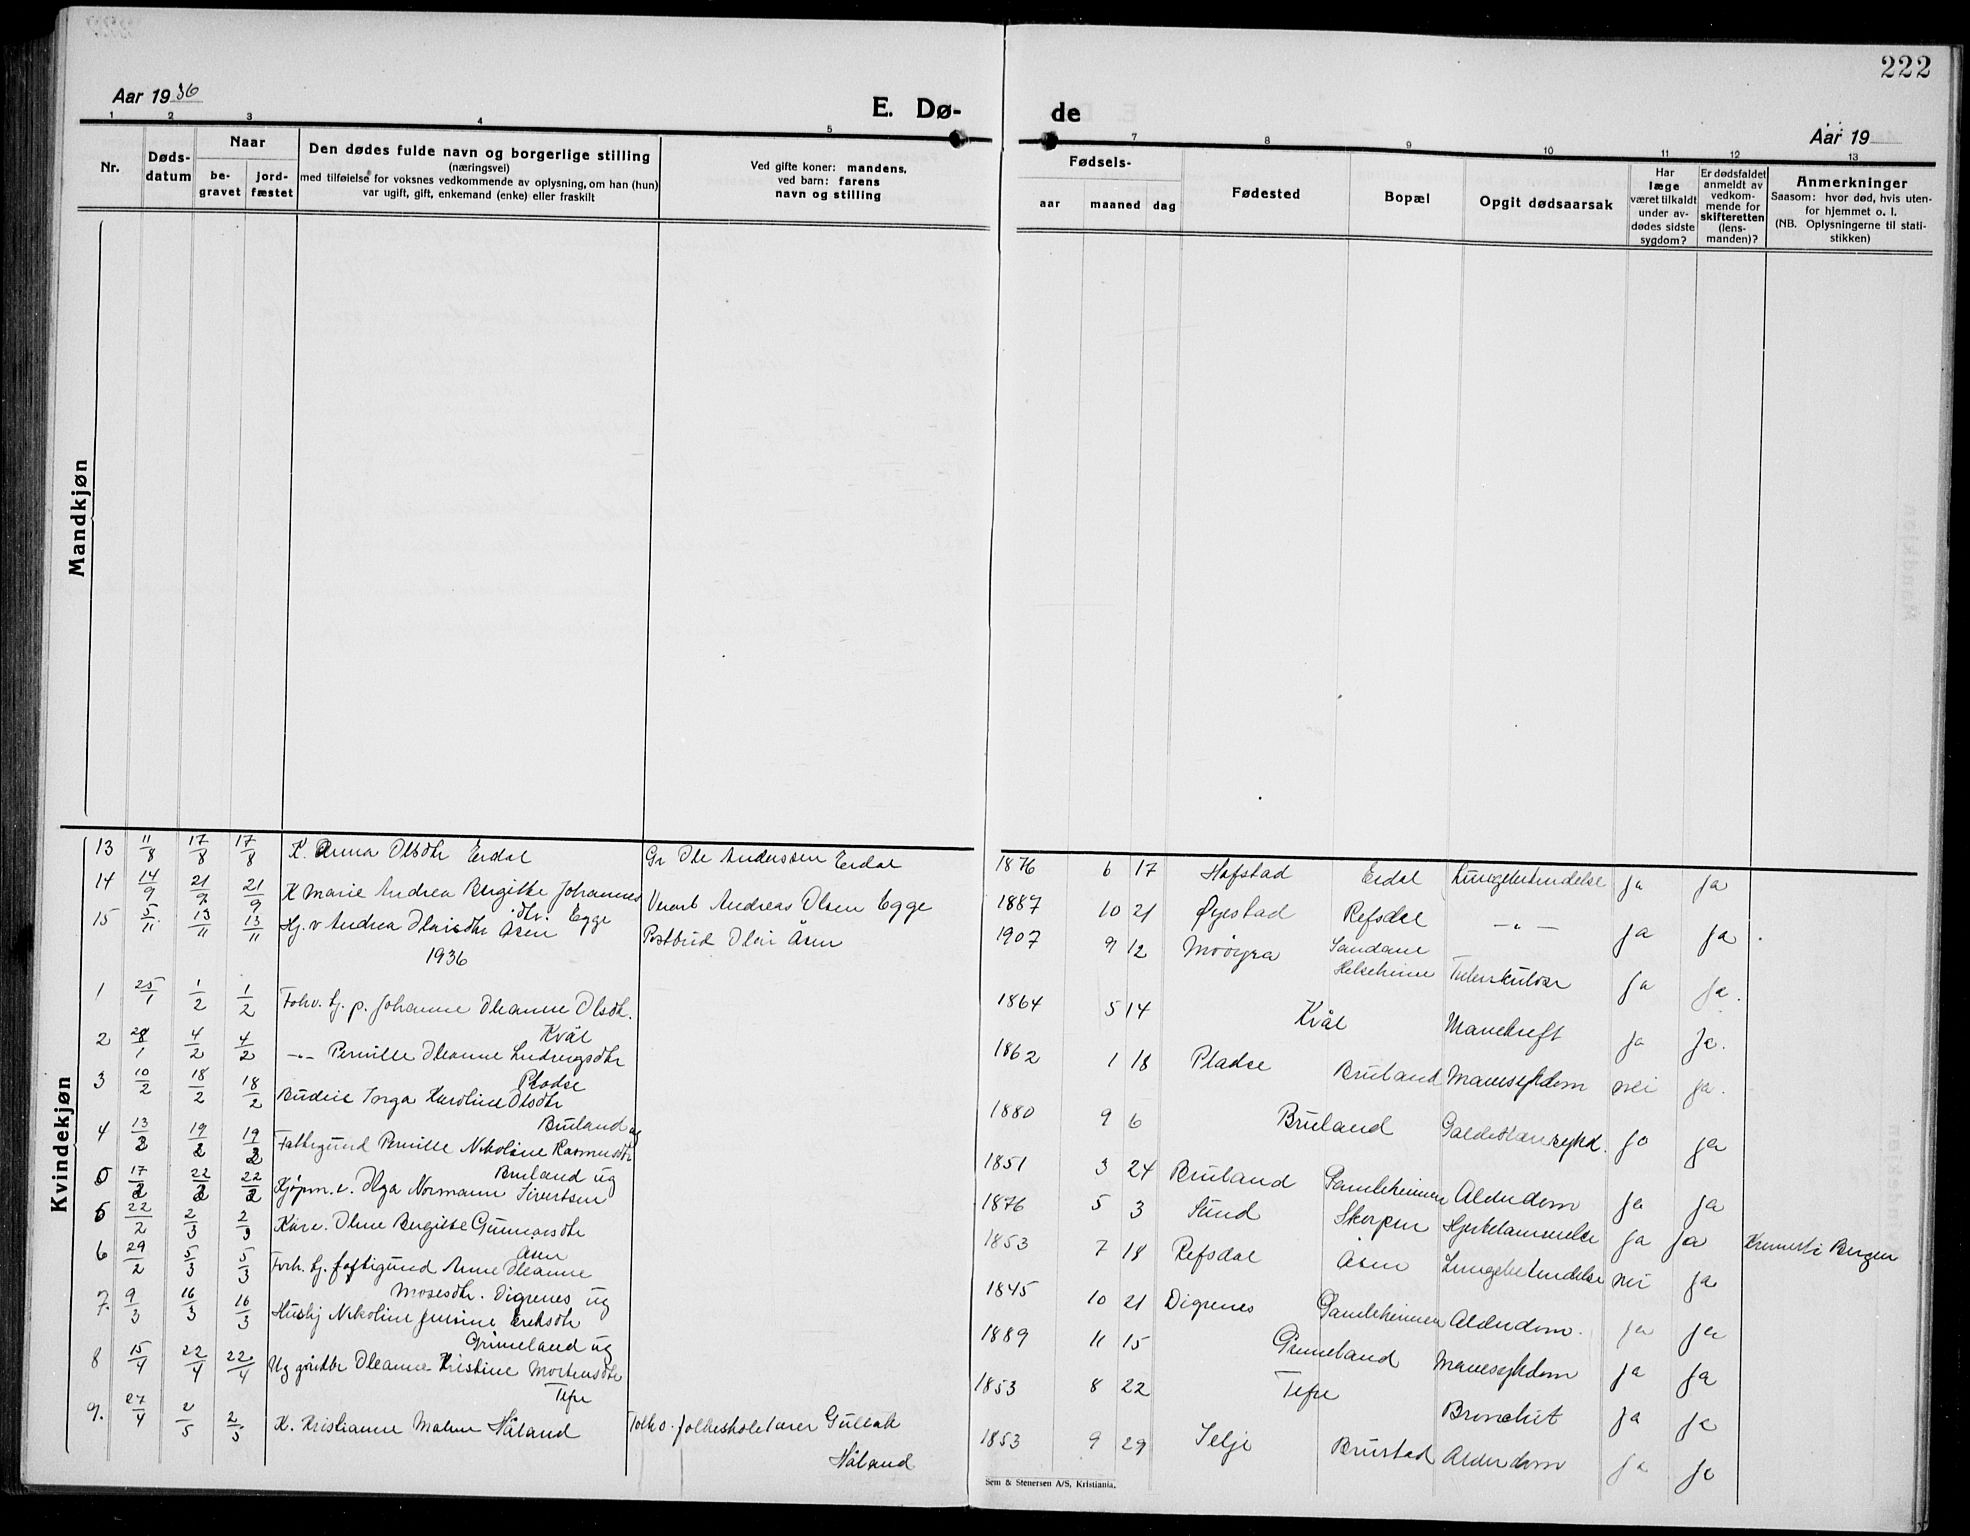 222
Aar 1936
E. Dø- de
Aar 19
1 2 3 4 5 7 8 9 10 11 12 13
Nr.
Døds-
datum
Naar
be-
gravet
jord-
fæstet
Den dødes fulde navn og borgerlige stilling
(næringsvei)
med tilføielse for voksnes vedkommende av oplysning, om han (hun)
var ugift, gift, enkemand (enke) eller fraskilt
Ved gifte koner: mandens,
ved barn: farens
navn og stilling
Fødsels-
aar maaned dag
Fødested
Bopæl
Opgit dødsaarsak
Har
læge
været tilkaldt
under av-
dødes sidste
sygdom?
Er dødsfaldet
anmeldt av
vedkom-
mende for
skifteretten
(lens-
manden)?
Anmerkninger
Saasom: hvor død, hvis uten-
for hjemmet o. l.
(NB. Oplysningerne til stati-
stikken)
Mandkjøn
Kvindekjøn
13 11/8 17/8 17/8 K. Anna Olsdtr Erdal Gr Ole Anderssen Erdal 1876 6 17 Hafstad Erdal Lungebetendelse Ja Ja
14 14/9 21/9 21/9 K Marie Andrea Bergitte Johannes
dtr. Egge Verarb Andreas Olsen Egge 1887 10 21 Øyestad Refsdal -"- Ja Ja
15 5/11 13/11 13/11 Hj. v Andrea Olaisdtr Åsen Postbud Olai Åsen 1907 9 12 Sandane
Helseheim Tuberkulose Ja Ja.
1936
1 25/1 1/2 1/2 Forhv. hj. p. Johanne Oleanne Olsdtr.
Kvål 1864 5 14 Kvål Mavekreft Ja Ja.
2 28/1 4/2 4/2 -"- Pernille Oleanne Ludvigsdtr
Pladse 1862 1 18 Pladse Bruland Mavesykdom nei Ja.
3 10/2 18/2 18/2 Budeie Inga Karoline Olsdtr
Bruland ug 1880 9 6 Bruland Ja Ja
4 13/2 19/2 19/2 Fattigund Pernille Nikoline Rasmusdtr
Bruland ug 1851 3 24 Bruland Samleheimen Alderdom Ja Ja
5 17/2 22/2 22/2 Kjøpm. e. Olga Normann Sivertsen 1876 5 3 Sund Skorpen Hjertelammelse Ja Ja Bergen
5 22/2 2/3 2/3 Kåre. Oline Bergitte Gunnarsdtr
Åsen 1853 7 18 Refsdal Åsen Lungebetendelse nei Ja
6 29/2 5/3 5/3 Forh. hj. fattigund Anne Oleanne
Mosesdtr. Digrenes ug 1845 10 21 Digrenes Samleheimen Alderdom. Ja Ja
7. 9/3 16/3 16/3 Hushj Nikoline Jensine Eriksdtr
Grimeland ug 1889 11 15 Grimeland Mavesykdom Ja Ja
8 15/4 22/4 22/4 Ug gårdbr Oleanne Kristine Mortensdtr
Tefre 1853 8 22 Tefre Bronchit Ja Ja
9. 27/4 2/5 2/5 K. Kristianne Malene Håland Folkeskolelærer Gullak
Håland 1853 9 29 Selje Brustad Alderdom Ja Ja
Sem & Stenersen A/S, Kristiania.